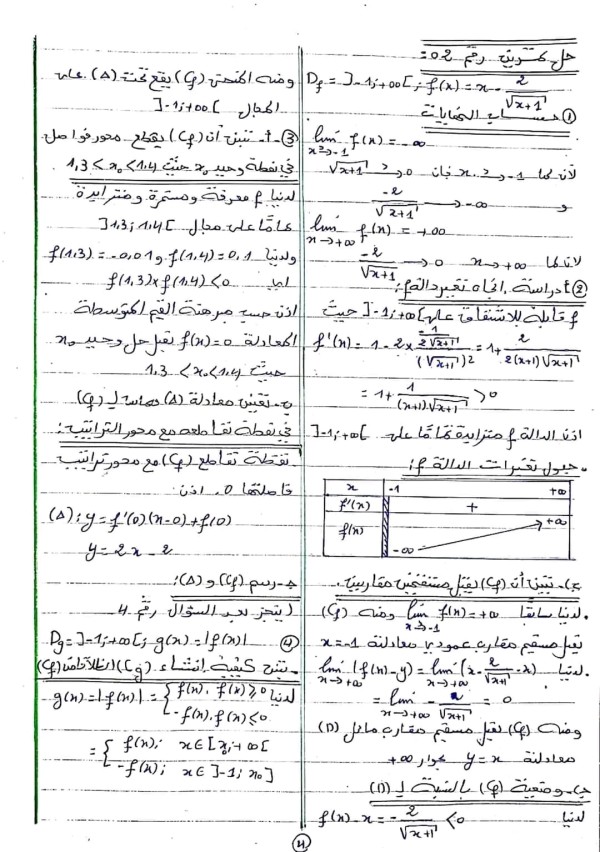 حل تمرين رقم 02:
D_f = ]-1;+∞[ ; f(x) = x - 2/√(x+1)
① حساب النهايات
lim f(x) = -∞
x→-1
لأن لما x→-1 فإن √(x+1) → 0
و -2/√(x+1) → -∞
lim f(x) = +∞
x→+∞
لأن لما x→+∞ -2/√(x+1) → 0
② أ دراسة اتجاه تغير الدالة f:
f قابلة للاشتقاق على ]-1;+∞[ حيث
f'(x) = 1 - 2 × (-1/(2√(x+1)))/(√(x+1))² = 1 + 2/(2(x+1)√(x+1))
= 1 + 1/((x+1)√(x+1)) > 0
اذن الدالة f متزايدة تماما على ]-1;+∞[
جدول تغيرات الدالة f:
x -1 +∞
f'(x) +
f(x) -∞ +∞
ب- تبيين أن (Cf) يقبل مستقيمين مقاربين.
لدينا سابقا lim f(x) = +∞ ومنه (Cf)
x→-1
يقبل مستقيم مقارب عمودي معادلته x=-1
لدينا lim (f(x)-y) = lim (x - 2/√(x+1) - x)
x→+∞ x→+∞
= lim - 2/√(x+1) = 0
x→+∞
ومنه (Cf) يقبل مستقيم مقارب مائل (D)
معادلته y = x بجوار +∞
ج- وضعية (Cf) بالنسبة لـ (D)
لدينا f(x) - x = - 2/√(x+1) < 0
ومنه المنحنى (Cf) يقع تحت (Δ) على
المجال ]-1;+∞[
③ أ- تبيين أن (Cf) يقطع محور فواصل
في نقطة وحيدة x₀ حيث 1,3 < x₀ < 1,4
لدينا f معرفة ومستمرة ومتزايدة
تماما على مجال ]1,3;1,4[
ولدينا f(1,4) = 0,1 و f(1,3) = -0,01
اي f(1,3) × f(1,4) < 0
اذن حسب مبرهنة القيم المتوسطة
المعادلة f(x)=0 تقبل حل وحيد x₀
حيث 1,3 < x₀ < 1,4
ب- تعيين معادلة (Δ) مماس لـ (Cf)
في نقطة تقاطعه مع محور التراتيب:
نقطة تقاطع (Cf) مع محور تراتيب
فاصلتها 0. اذن
(Δ): y = f'(0)(x-0) + f(0)
y = 2x - 2
ج- رسم (Cf) و (Δ):
(ينجز بعد السؤال رقم 4.
④ D_g = ]-1;+∞[ ; g(x) = |f(x)|
- تبيين كيفية إنشاء (Cg) انطلاقا من (Cf)
لدينا g(x) = |f(x)| = { f(x), f(x) ≥ 0
-f(x), f(x) ≤ 0
= { f(x); x ∈ [x₀;+∞[
-f(x); x ∈ ]-1; x₀]